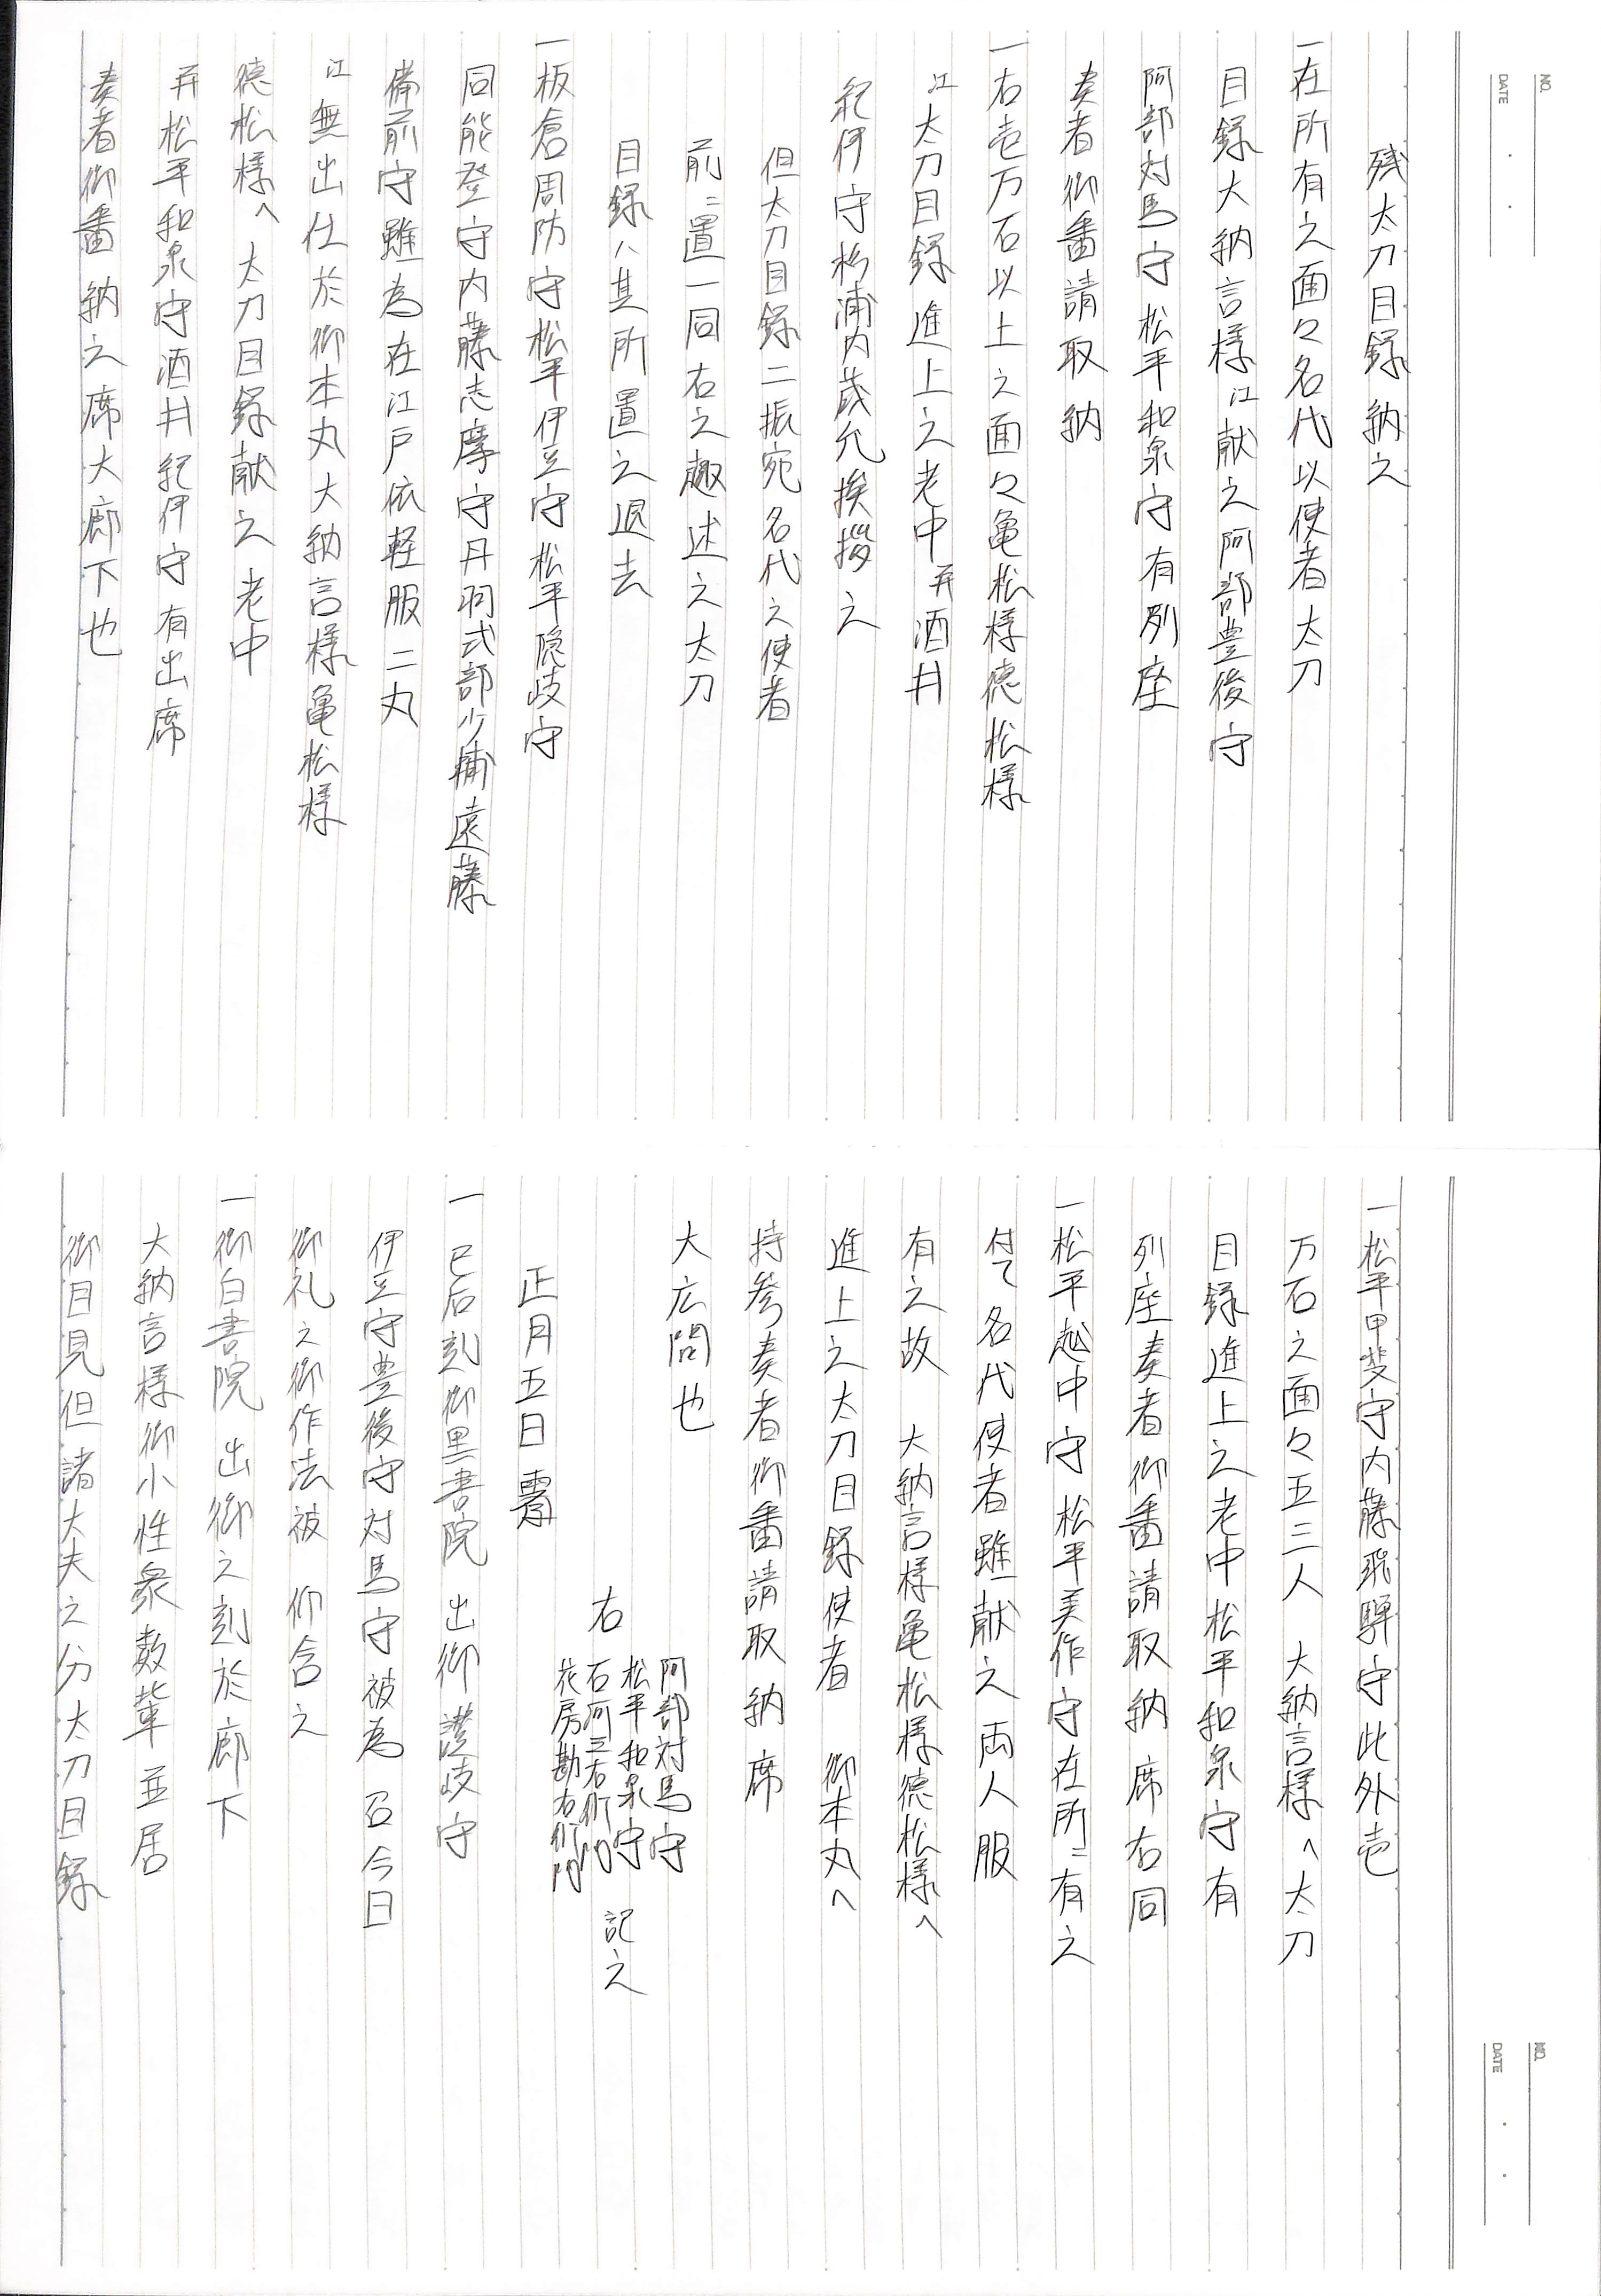 NO.
DATE
残太刀目録納之
一在所有之面々名代以使者太刀
目録大納言様江献之阿部豊後守
阿部対馬守松平和泉守有列座
奏者御番請取納
一右壱万石以上之面々亀松様徳松様
江太刀目録進上之老中并酒井
紀伊守杉浦内蔵允挨拶之
但太刀目録二振宛名代之使者
前ニ置一同右之趣述之太刀
目録ハ其所置之退去
一板倉周防守松平伊豆守松平隠岐守
同能登守内藤志摩守丹羽式部少輔遠藤
備前守雖為在江戸依軽服二丸
江無出仕於御本丸大納言様亀松様
徳松様へ太刀目録献之老中
并松平和泉守酒井紀伊守有出席
奏者御番納之席大廊下也
NO.
DATE
一松平甲斐守内藤飛騨守此外壱
万石之面々五三人 大納言様へ太刀
目録進上之老中松平和泉守有
列座奏者御番請取納席右同
一松平越中守松平美作守在所ニ有之
付て名代使者雖献之両人服
有之故 大納言様亀松様徳松様へ
進上之太刀目録使者 御本丸へ
持参奏者御番請取納席
大広間也
阿部対馬守
松平和泉守
右 石河三右衛門 記之
花房勘右衛門
正月五日 霽
一巳后刻御黒書院 出御 讃岐守
伊豆守豊後守対馬守被為 召今日
御礼之御作法被 仰含之
一御白書院 出御之刻於廊下
大納言様御小性衆数輩並居
御目見但諸大夫之分太刀目録